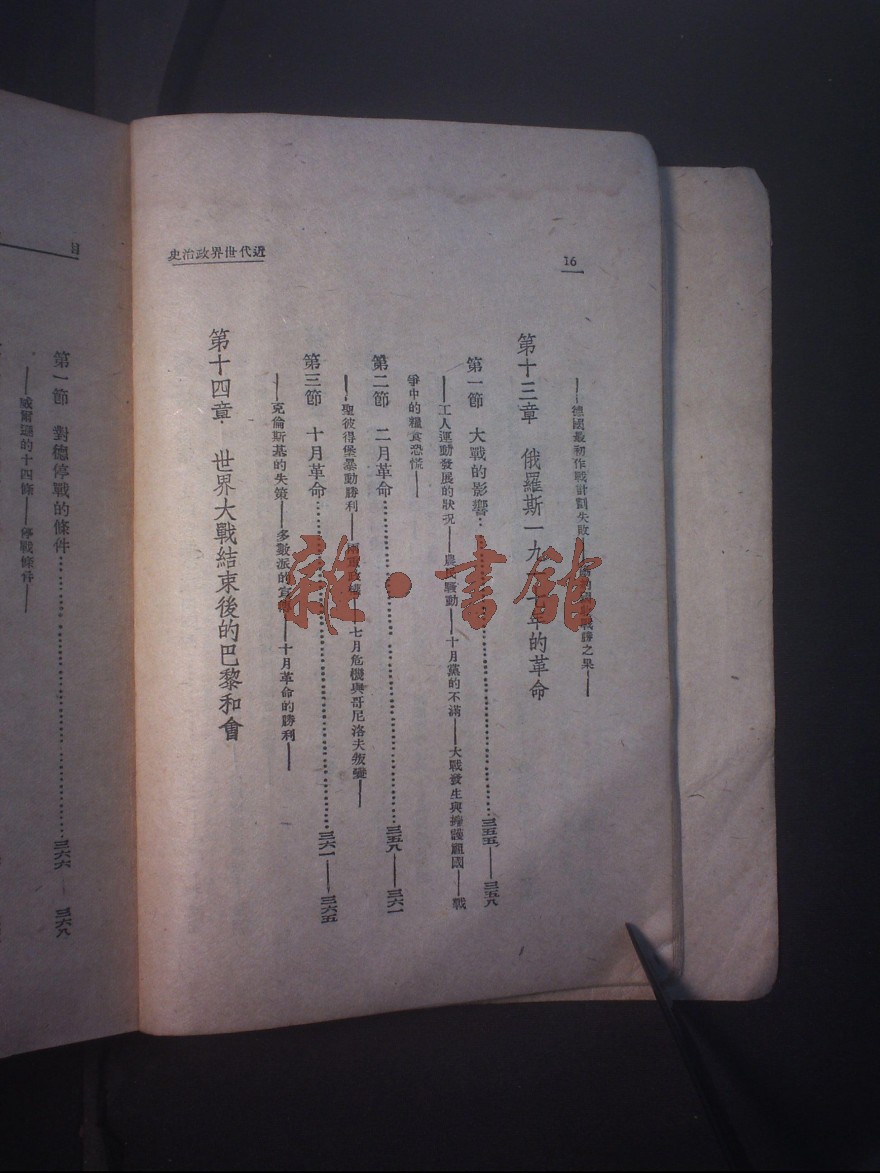 16
近代世界政治史
——德國最初作戰計劃失敗 戰勝之果——
第十三章 俄羅斯一九一七年的革命
第一節 大戰的影響 三五五——三五八
——工人運動發展的狀況——農民騷動——十月黨的不滿——大戰發生與擁護祖國——戰
爭中的糧食恐慌——
第二節 二月革命 三五八——三六一
——聖彼得堡暴動勝利——七月危機與哥尼洛夫叛變——
第三節 十月革命 三六一——三六五
——克倫斯基的失策——多數派的宣傳——十月革命的勝利——
第十四章 世界大戰結束後的巴黎和會
目
第一節 對德停戰的條件 三六六——三六八
——威爾遜的十四條——停戰條件——
雜·書館